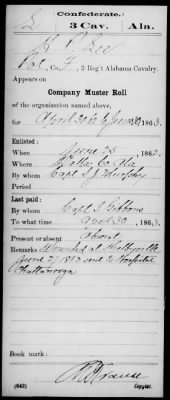 Confederate.
L 3 Cav. Ala.
Lee
Co. F, 3 Reg't Alabama Cavalry.
Appears on
Company Muster Roll
of the organization named above,
for April 30 to June 30, 1863.
Enlisted:
When June 25, 1862.
Where Dallas Co Ala
By whom Capt
Period
Last paid:
By whom Capt J Gibbons
To what time April 30, 1863.
Present or absent Absent
Remarks Wounded at Shelbyville
June 27 1863 sent to Hospital
Chattanooga
Book mark:
(642) Copyist.